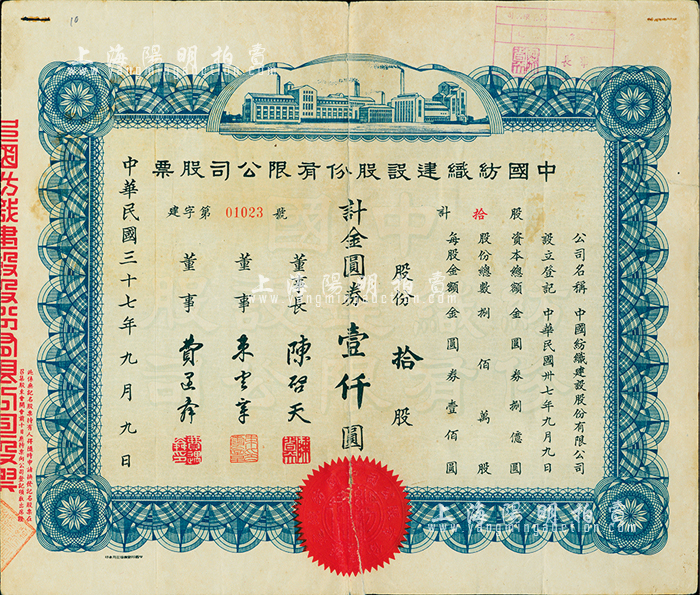 10
上海陽明拍賣
中國紡織建設股份有限公司股票
公司名稱 中國紡織建設股份有限公司
設立登記 中華民國卅七年九月九日
資本總額 金圓券捌億圓
股份總數 捌佰萬股
每股金額 金圓券壹佰圓
計 拾 股
股份 拾 股
計金圓券壹仟圓
建字第 01023 號
董事長 陳啓天
董事
董事
中華民國三十七年九月九日
上海陽明拍賣
www.yangmingauction.com
上海陽明拍賣
www.yangmingauction.com